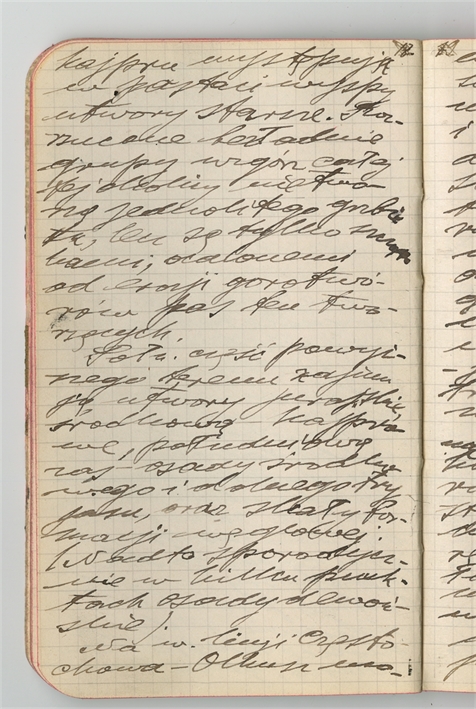 kajpru występują
w postaci wyspy
utwory starsze. Roz-
rzucone bezładnie
grupy wzgórz całej
tej okolicy nie two-
rzą jednolitego grzbie
tu, lecz są tylko
kami, ocalonemi
od erozji górotwo-
rów pas ten two-
rzących.
Połn. część powyż-
szego terenu zajmu
ją utwory jurajskie,
środkową – kajpro
we, południową
zaś osady środko
wego i dolnego try
jasu, oraz skały for-
macji węglowej.
Nadto sporadycz-
nie w kilku punk-
tach osady dewoń-
skie.
Na w. linji Często-
chowa – Olkusz